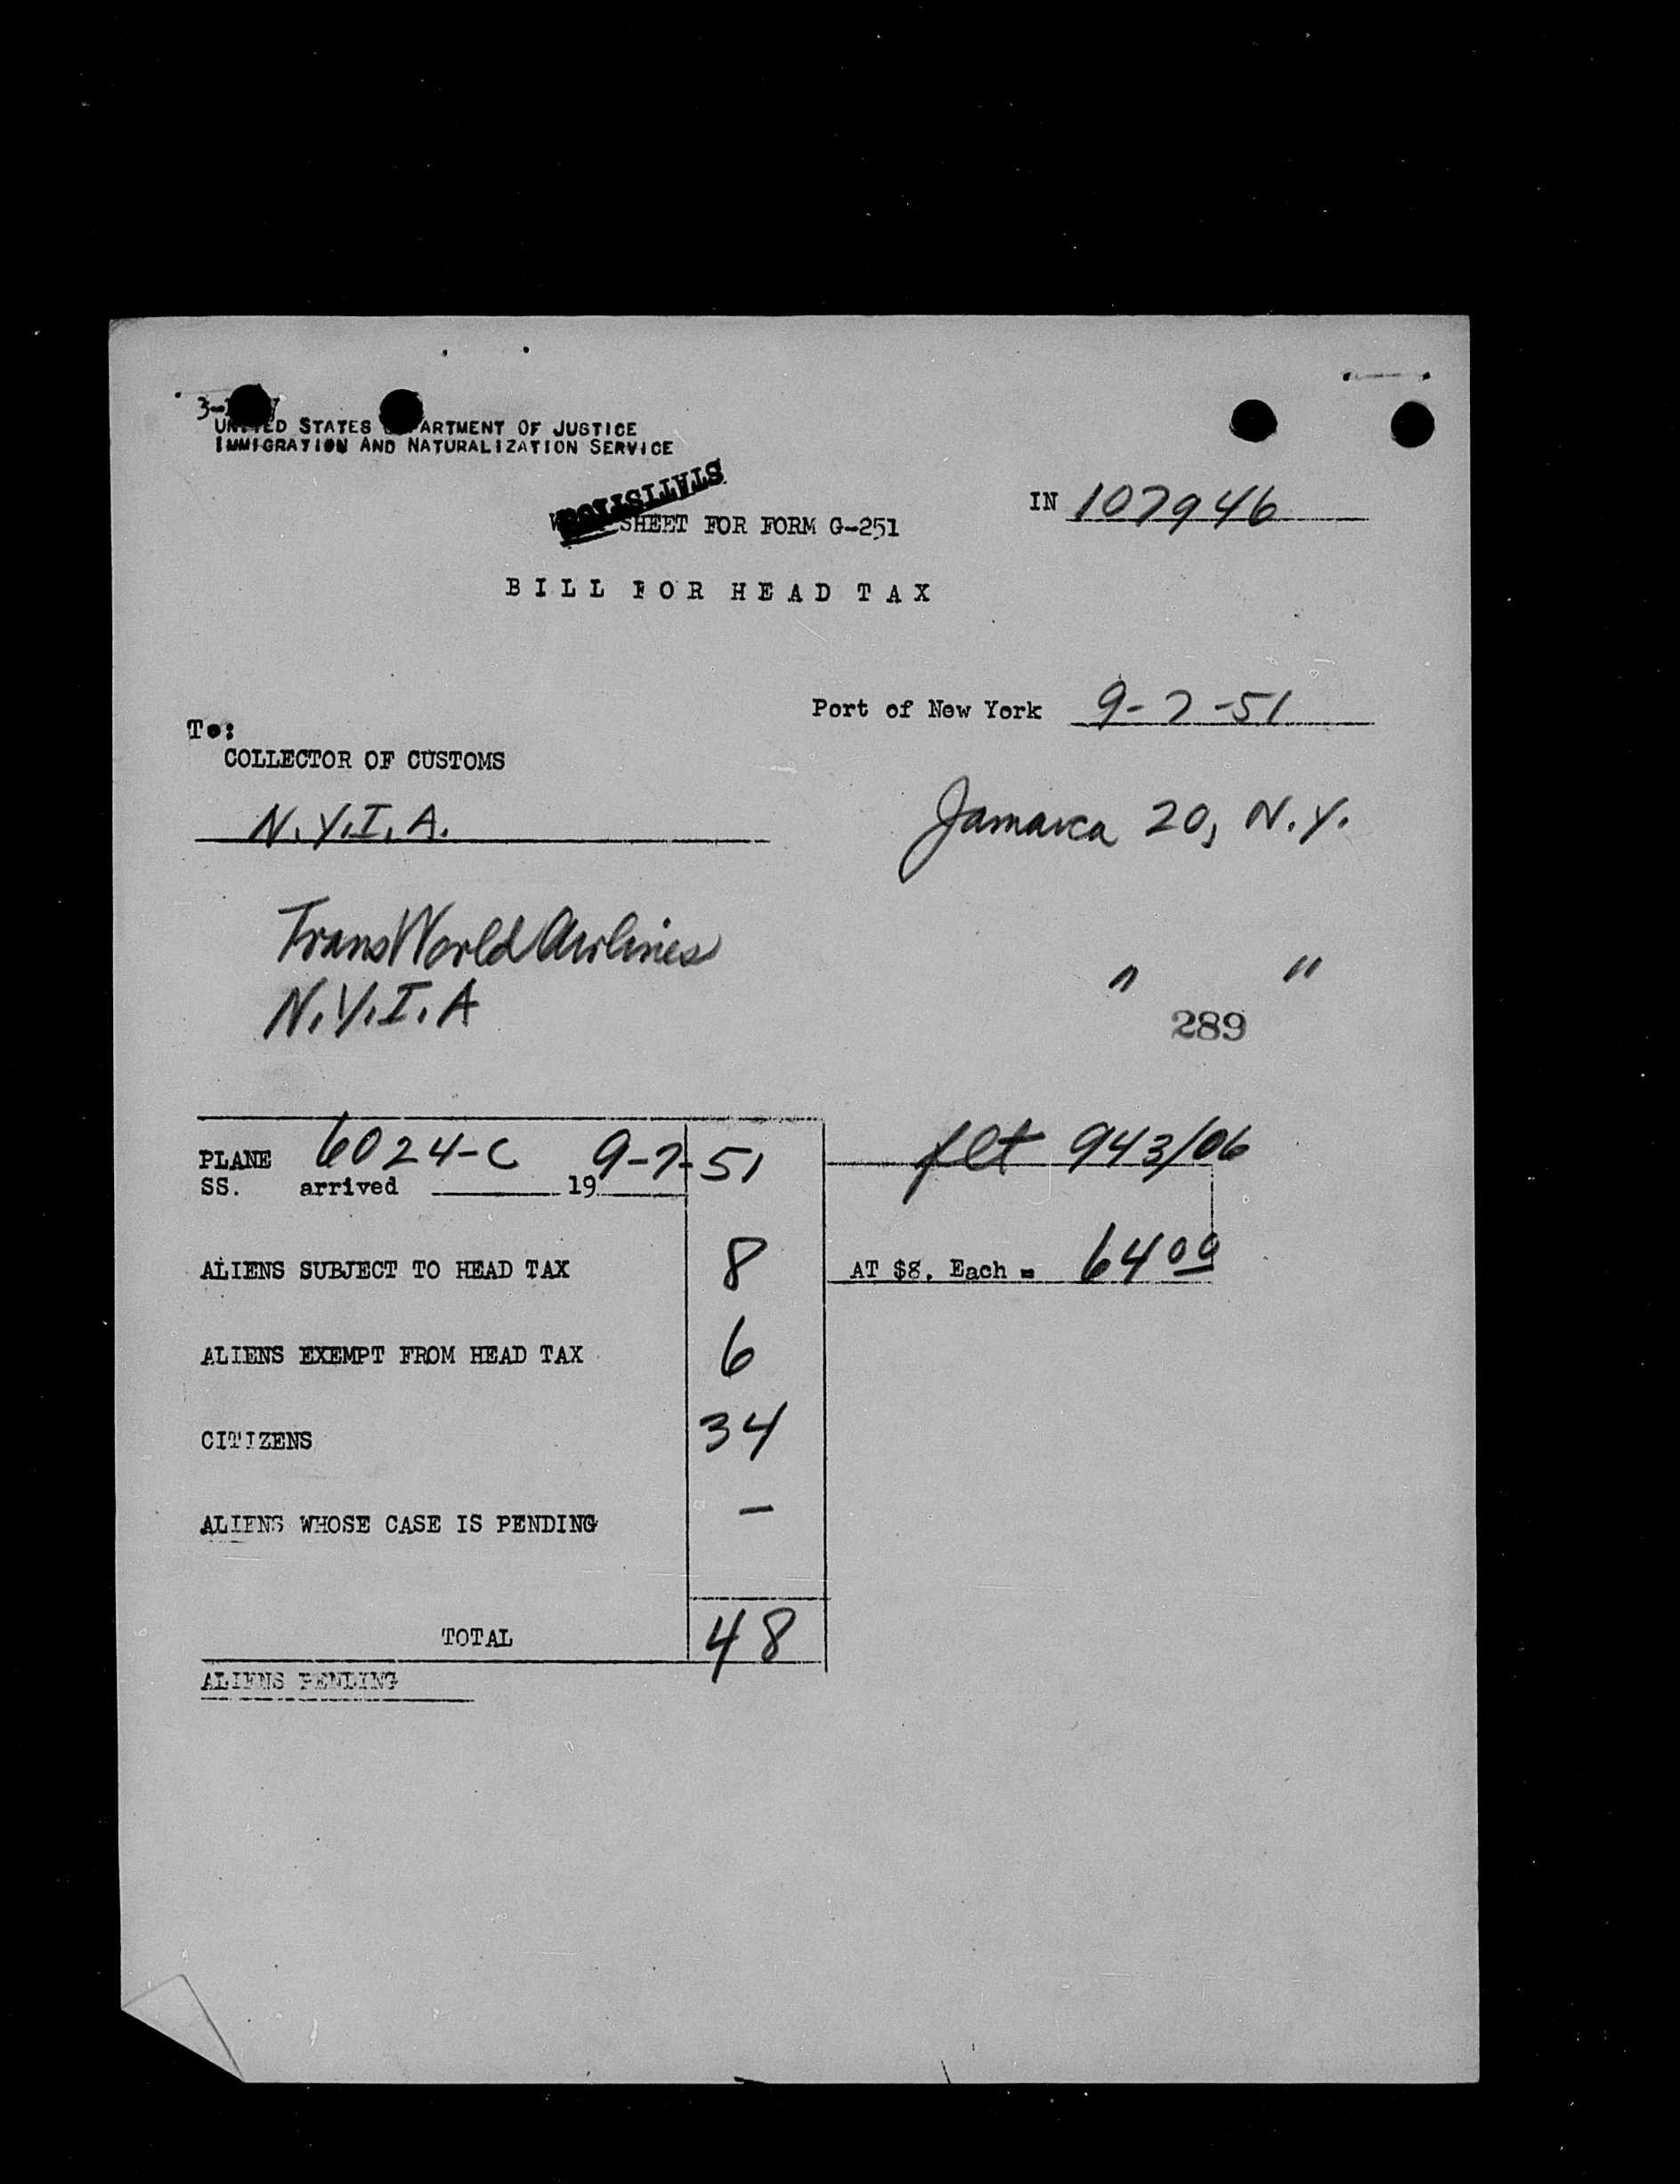 UNITED STATES DEPARTMENT OF JUSTICE
IMMIGRATION AND NATURALIZATION SERVICE
STATISTICS
SHEET FOR FORM G-251
IN 107946
BILL FOR HEAD TAX
Port of New York 9-7-51
To:
COLLECTOR OF CUSTOMS
N.Y.I.A.
Jamaica 20, N.Y.
TransWorld Airlines
" "
N.Y.I.A
289
PLANE 6024-C 9-7-51 flt 943/06
SS. arrived 19
ALIENS SUBJECT TO HEAD TAX 8 AT $8. Each = 64 00
ALIENS EXEMPT FROM HEAD TAX 6
CITIZENS 34
ALIENS WHOSE CASE IS PENDING -
TOTAL 48
ALIENS PENDING